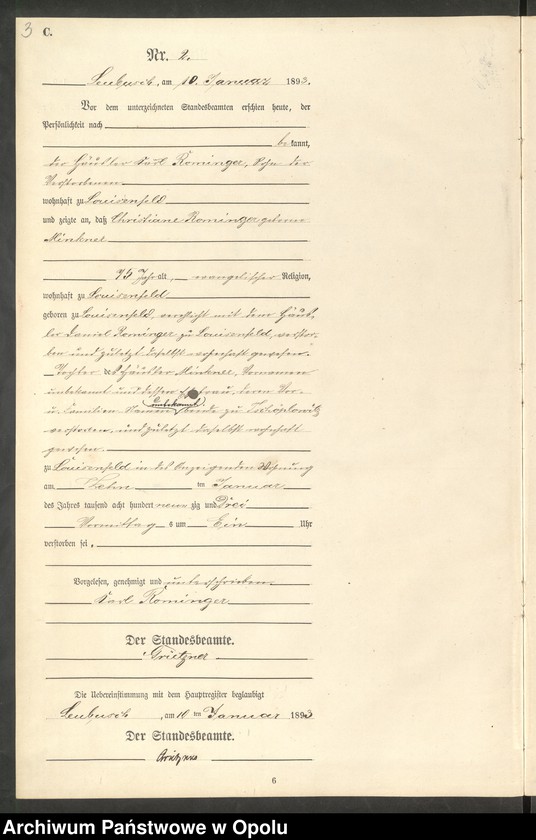 3 C.
Nr. 2.
Leubusch, am 10. Januar 1893.
Vor dem unterzeichneten Standesbeamten erschien heute, der
Persönlichkeit nach
be kannt,
der Häusler Karl Rominger, Sohn der
Verstorbenen
wohnhaft zu Louisenfeld
und zeigte an, daß Christiane Rominger geborne
Minkner
75 Jahr alt, evangelischer Religion,
wohnhaft zu Louisenfeld
geboren zu Louisenfeld, verehlicht mit dem Häus-
ler Daniel Rominger zu Louisenfeld, verstor-
ben und zuletzt daselbst wohnhaft gewesen.
Tochter des Häusler Minkner, Vornamen
unbekannt und dessen Ehefrau, deren Vor-
unbekannt
u. Familien Namen beide zu
verstorben, und zuletzt daselbst wohnhaft
gewesen.
zu Louisenfeld in des Anzeigenden Wohnung
am Zehn ten Januar
des Jahres tausend acht hundert neun zig und Drei
Vormittag s um Ein Uhr
verstorben sei.
Vorgelesen, genehmigt und unterschrieben
Karl Rominger
Der Standesbeamte.
Grietzner
Die Uebereinstimmung mit dem Hauptregister beglaubigt
Leubusch, am 10 ten Januar 1893
Der Standesbeamte.
Grietzner
6
Archiwum Państwowe w Opolu